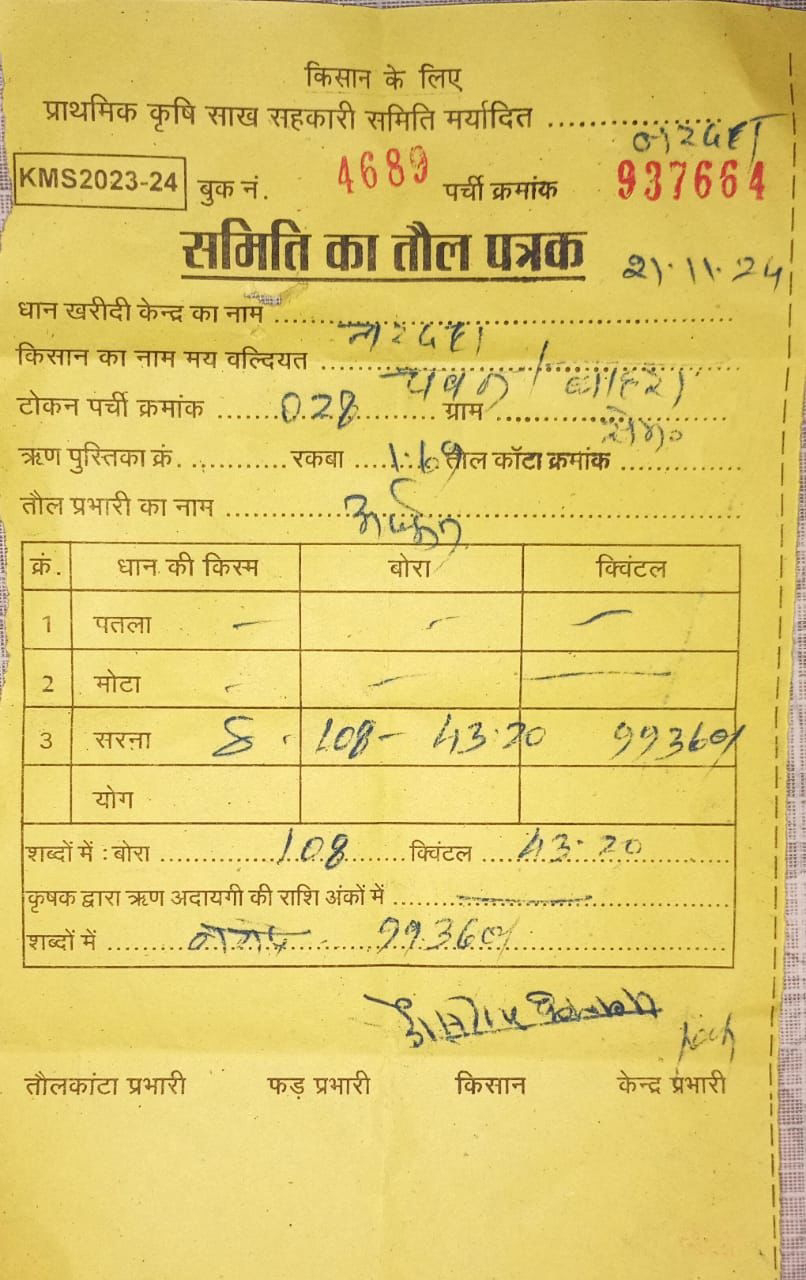 किसान के लिए
प्राथमिक कृषि साख सहकारी समिति मर्यादित ..................
KMS2023-24 बुक नं. 4689 पर्ची क्रमांक 937664
समिति का तौल पत्रक 21.11.24
धान खरीदी केन्द्र का नाम ..................
किसान का नाम मय वल्दियत ..................
टोकन पर्ची क्रमांक ...... 028 ...... ग्राम ..................
ऋण पुस्तिका क्रं. ............ रकबा .... तौल काँटा क्रमांक ............
तौल प्रभारी का नाम ..................
क्रं. धान की किस्म बोरा क्विंटल
1 पतला - - -
2 मोटा - - -
3 सरना 108 - 43.20 99360/
योग
शब्दों में : बोरा ............ 108 ...... क्विंटल .... 43.20 ......
कृषक द्वारा ऋण अदायगी की राशि अंकों में ..................
शब्दों में ............ 99360/ ............
तौलकांटा प्रभारी फड़ प्रभारी किसान केन्द्र प्रभारी